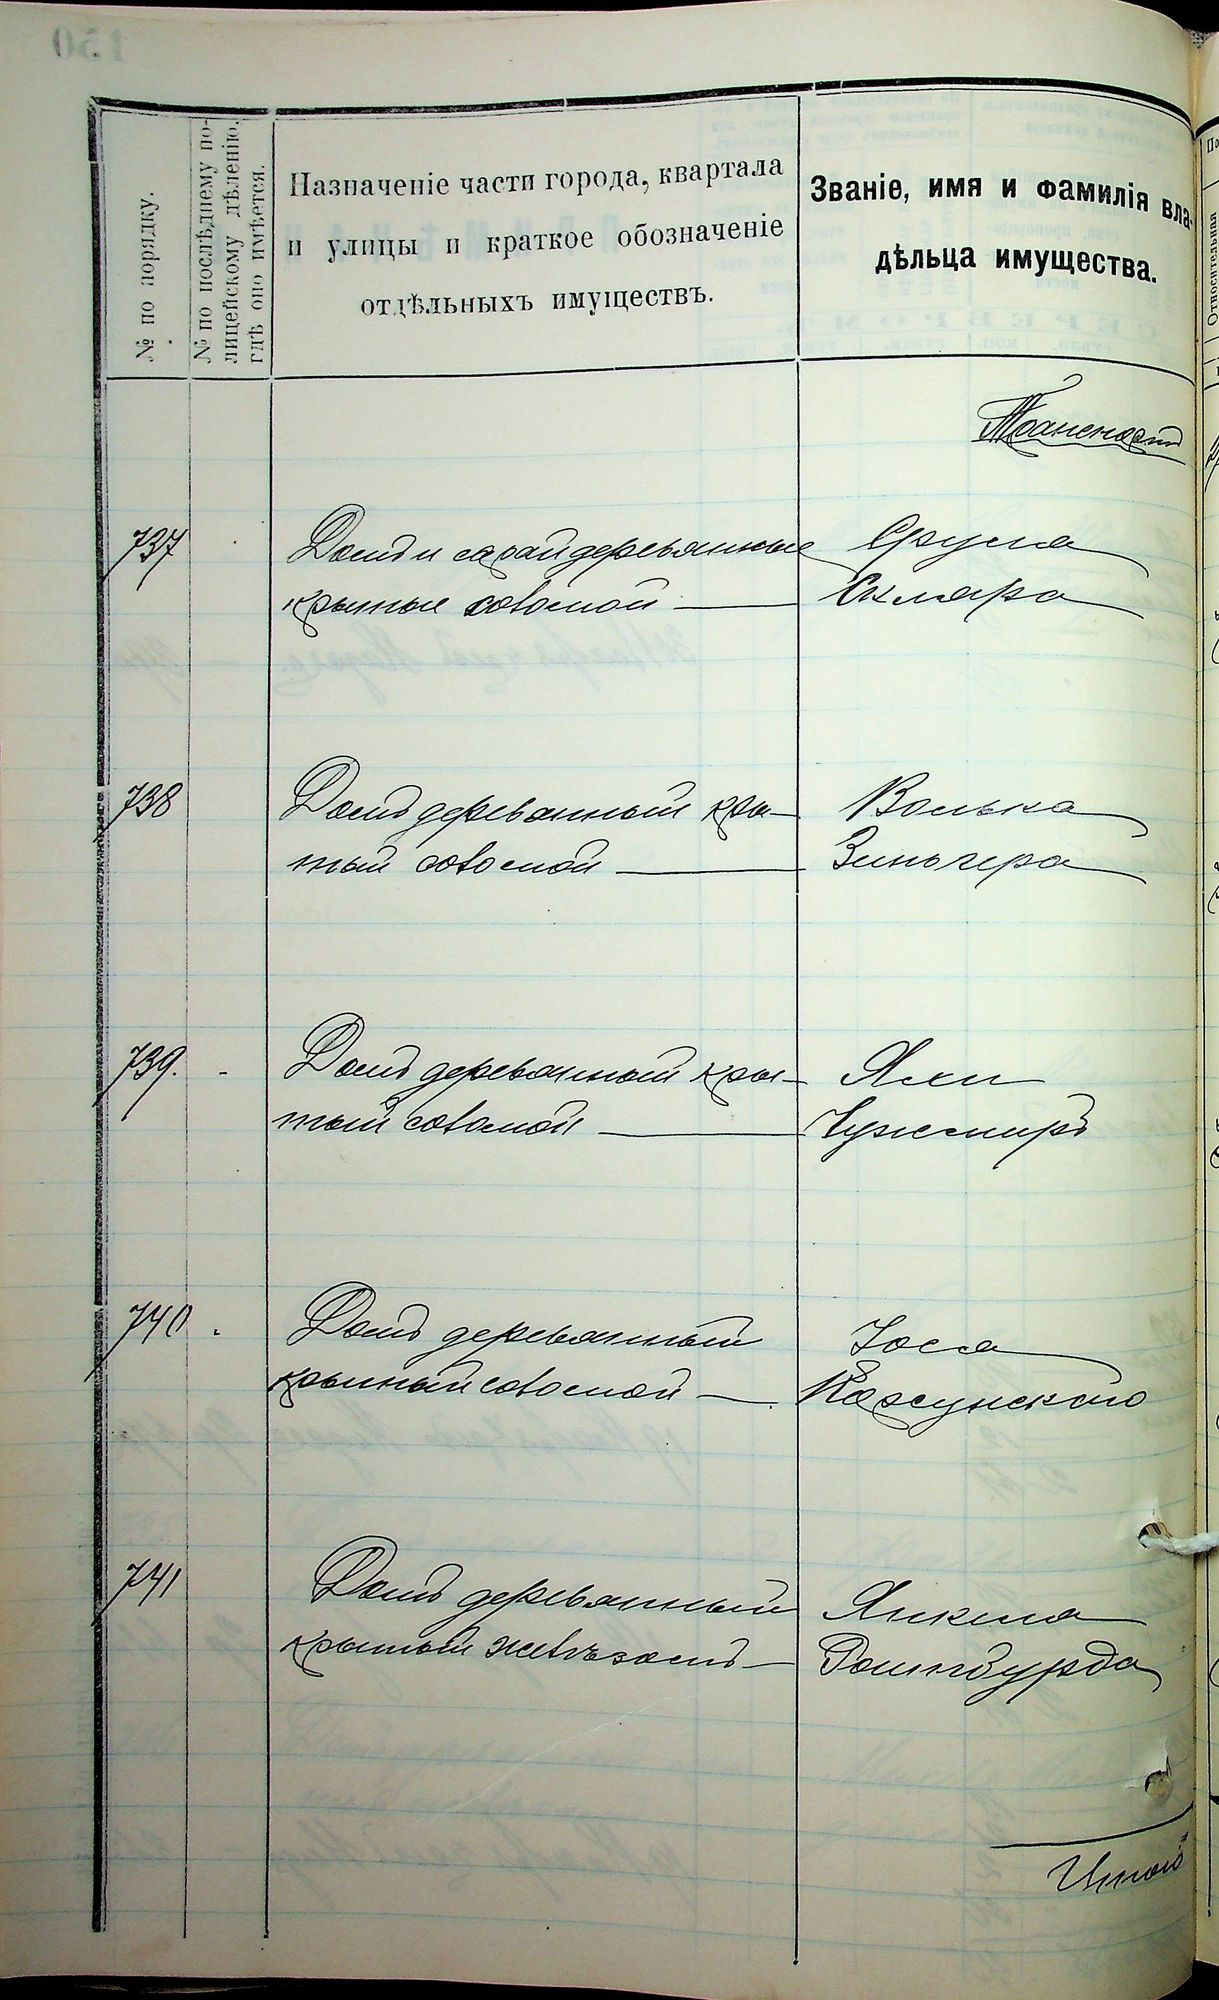 № по порядку.
№ по послѣднему по-
лицейскому дѣленію,
гдѣ оно имѣется.
Назначеніе части города, квартала
и улицы и краткое обозначеніе
отдѣльныхъ имуществъ.
Званіе, имя и фамилія вла-
дѣльца имущества.
Транспортъ
737
Домъ и сарай деревянные
крытые соломой
Сруля
Скляра
738
Домъ деревянный кры-
тый соломой
Волька
Зингера
739.
Домъ деревянный кры-
тый соломой
Чужмиръ
740
Домъ деревянный
крытый соломой
Іося
Корсунскаго
741
Домъ деревянный
крытый желѣзомъ
Янкеля
Ротбурда
Итого